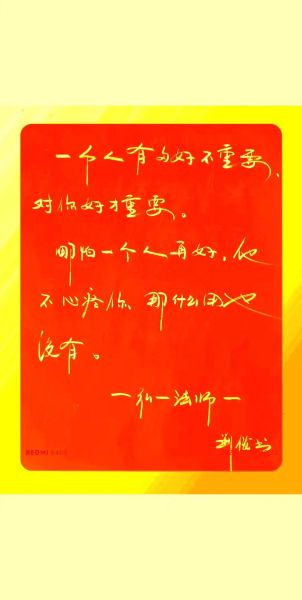 一个人有多好不重要，
对你好才重要。
哪怕一个人再好，他
不心疼你，那什么用也
没有。
一弘一法师一
刘俊书
REDMI